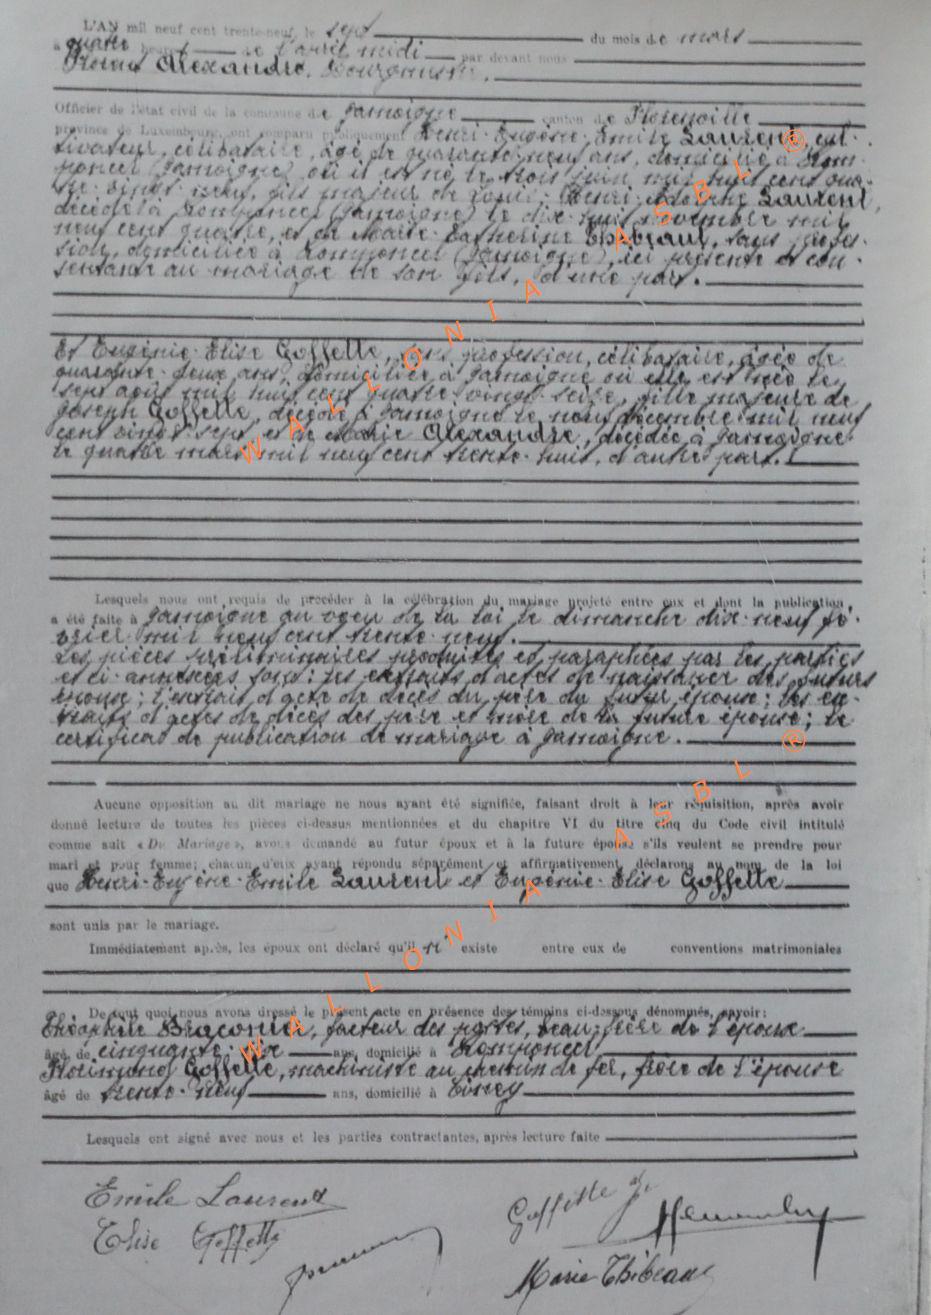 L'AN mil neuf cent trente-neuf, le sept du mois de mars
à quatre heures de l'après midi par devant nous
Alexandre, Bourgmestre,
Officier de l'état civil de la commune de Jamoigne canton de Florenville
province de Luxembourg, ont comparu publiquement Henri-Eugène-Emile Laurent, cul-
tivateur, célibataire, âgé de quarante-neuf ans, domicilié à Rom-
poncel (Jamoigne) où il est né le trois juin mil huit cent qua-
tre-vingt-neuf, fils majeur de Louis-Henri-Adolphe Laurent,
décédé à Romponcel (Jamoigne) le dix-huit novembre mil
neuf cent quatre, et de Marie-Catherine Thibeaux, sans profes-
sion, domiciliée à Romponcel (Jamoigne), ici présente et con-
sentante au mariage de son fils, d'une part.
Et Eugénie-Elise Goffette, sans profession, célibataire, âgée de
quarante-deux ans, domiciliée à Jamoigne où elle est née le
sept août mil huit cent quatre-vingt-seize, fille majeure de
Joseph Goffette, décédé à Jamoigne le neuf décembre mil neuf
cent vingt-sept et de Marie Alexandre, décédée à Jamoigne
le quatre mars mil neuf cent trente-huit, d'autre part.
Lesquels nous ont requis de procéder à la célébration du mariage projeté entre eux et dont la publication
a été faite à Jamoigne au vœu de la loi le dimanche dix-neuf fé-
vrier mil neuf cent trente-neuf.
Les pièces préliminaires produites et paraphées par les parties
et ci-annexées sont: les extraits d'actes de naissance des futurs
époux; l'extrait d'acte de décès du père du futur époux; les ex-
traits d'actes de décès des père et mère de la future épouse; le
certificat de publication de mariage à Jamoigne.
Aucune opposition au dit mariage ne nous ayant été signifiée, faisant droit à leur réquisition, après avoir
donné lecture de toutes les pièces ci-dessus mentionnées et du chapitre VI du titre cinq du Code civil intitulé
comme suit « Du Mariage », avons demandé au futur époux et à la future épouse s'ils veulent se prendre pour
mari et pour femme; chacun d'eux ayant répondu séparément et affirmativement, déclarons au nom de la loi
que Henri-Eugène-Emile Laurent et Eugénie-Elise Goffette
sont unis par le mariage.
Immédiatement après, les époux ont déclaré qu'il n' existe entre eux de conventions matrimoniales
De tout quoi nous avons dressé le présent acte en présence des témoins ci-dessous dénommés, savoir:
Théophile Braconnier, facteur des postes, beau-frère de l'époux
âgé de cinquante- ans, domicilié à Romponcel
Florimond Goffette, machiniste au chemin de fer, frère de l'épouse
âgé de trente-neuf ans, domicilié à Ciney
Lesquels ont signé avec nous et les parties contractantes, après lecture faite
Emile Laurent
Goffette
Elise Goffette
Marie Thibeaux
WALLONIA ASBL ®
WALLONIA ASBL ®